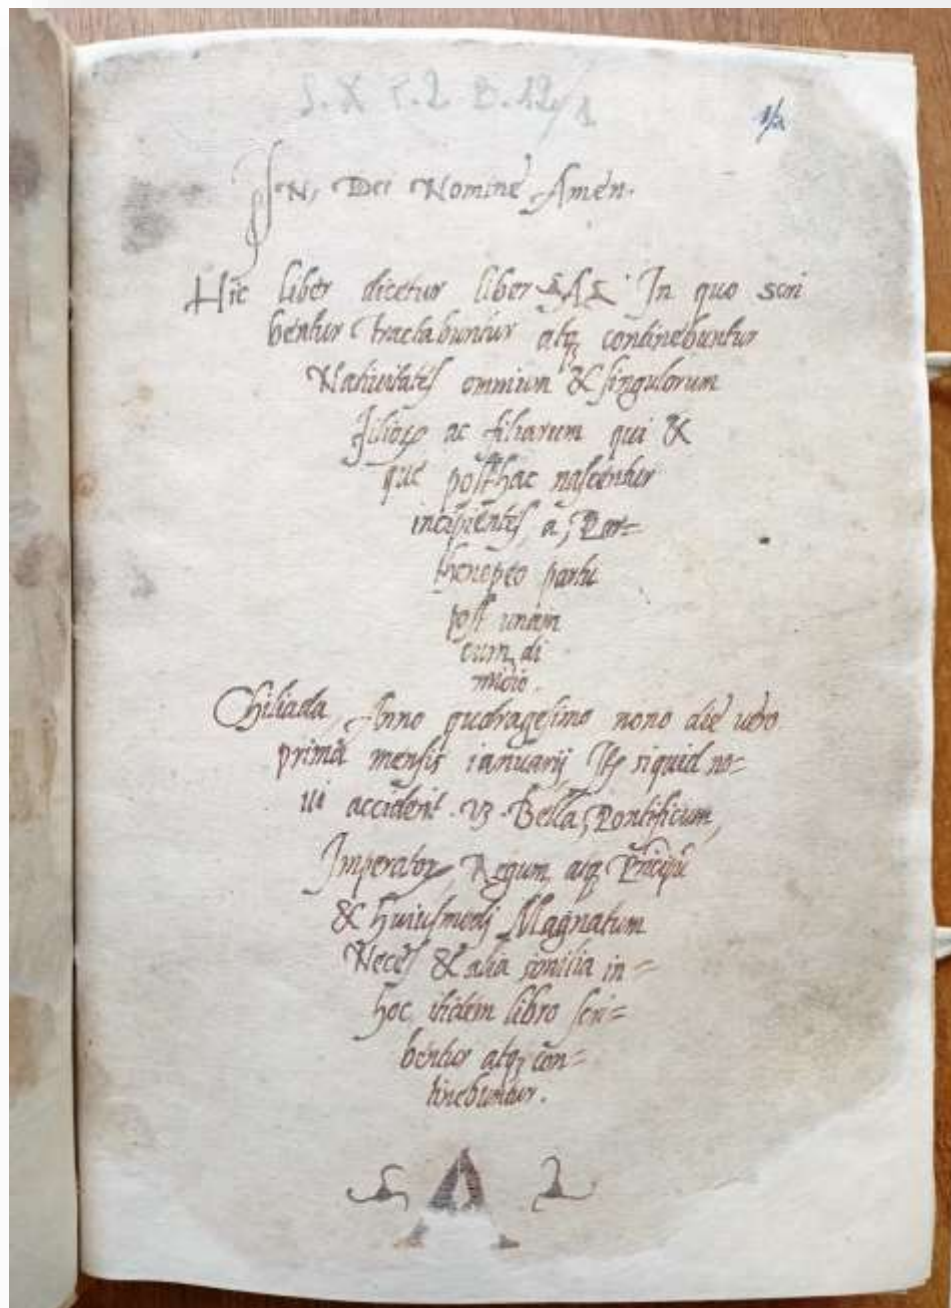 S. X P. 2 B. 12/1
1/2
IN, Dei Nomine Amen.
Hic liber dicetur liber A In quo scri
bentur tractabuntur atq; continebuntur
Natiuitates omnium & singulorum
filioꝝ ac filiarum qui &
que posthac nascentur
incipientes, a, Par=
thenopeo partu
post unam
cum di
midio.
Chiliada, Anno quadragesimo nono die uero
prima mensis ianuarij siquid no=
ui acciderit .vꝫ. Bella, Pontificum,
Imperatoꝝ, Regum, atq; Principũ
& huiusmodj Magnatum
Neces & alia similia in=
hoc ibidem libro scri=
bentur atq; con=
tinebuntur.
A